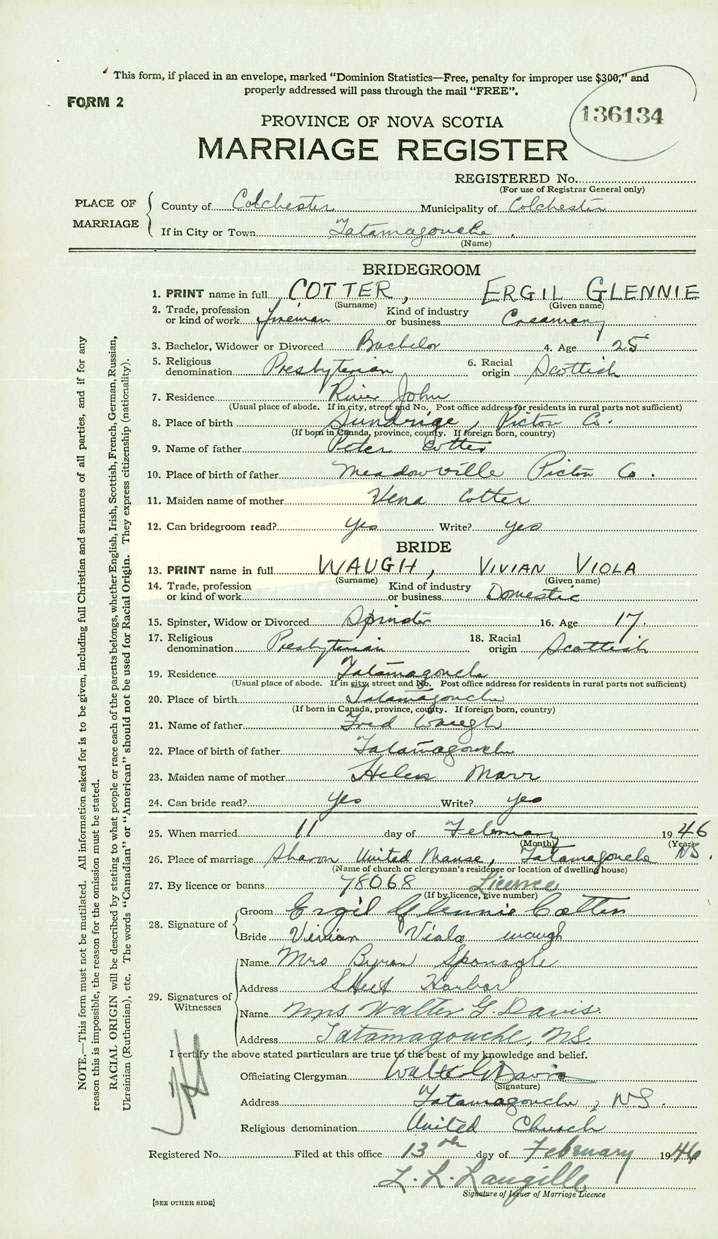 This form, if placed in an envelope, marked "Dominion Statistics—Free, penalty for improper use $300," and
properly addressed will pass through the mail "FREE".
FORM 2
136134
PROVINCE OF NOVA SCOTIA
MARRIAGE REGISTER
REGISTERED No.
(For use of Registrar General only)
PLACE OF MARRIAGE
County of Colchester Municipality of Colchester
If in City or Town Tatamagouche
(Name)
BRIDEGROOM
1. PRINT name in full COTTER, ERGIL GLENNIE
(Surname) (Given name)
2. Trade, profession or kind of work Fireman Kind of industry or business Creamery
3. Bachelor, Widower or Divorced Bachelor 4. Age 25
5. Religious denomination Presbyterian 6. Racial origin Scottish
7. Residence River John
(Usual place of abode. If in city, street and No. Post office address for residents in rural parts not sufficient)
8. Place of birth Sundrige, Picton Co.
(If born in Canada, province, county. If foreign born, country)
9. Name of father Peter Cotter
10. Place of birth of father Meadowville Picton Co.
11. Maiden name of mother Vena Cotter
12. Can bridegroom read? yes Write? yes
BRIDE
13. PRINT name in full WAUGH, VIVIAN VIOLA
(Surname) (Given name)
14. Trade, profession or kind of work Kind of industry or business Domestic
15. Spinster, Widow or Divorced Spinster 16. Age 17.
17. Religious denomination Presbyterian 18. Racial origin Scottish
19. Residence Tatamagouche
(Usual place of abode. If in city, street and No. Post office address for residents in rural parts not sufficient)
20. Place of birth Tatamagouche
(If born in Canada, province, county. If foreign born, country)
21. Name of father Fred Waugh
22. Place of birth of father Tatamagouche
23. Maiden name of mother Helen Marr
24. Can bride read? yes Write? yes
25. When married 11 day of February 1946
(Month) (Year)
26. Place of marriage Sharon United Manse, Tatamagouche NS.
(Name of church or clergyman's residence or location of dwelling house)
27. By licence or banns 78068 Licence
(If by licence, give number)
28. Signature of
Groom Ergil Glennie Cotter
Bride Vivian Viola Waugh
29. Signatures of Witnesses
Name Mrs Byron Sponagle
Address Sheet Harbor
Name Mrs Walter G. Davis.
Address Tatamagouche, NS.
I certify the above stated particulars are true to the best of my knowledge and belief.
Officiating Clergyman Walter G Davis
(Signature)
Address Tatamagouche, NS.
Religious denomination United Church
Registered No. Filed at this office 13th day of February 1946
L. L. Langille
Signature of Issuer of Marriage Licence
[SEE OTHER SIDE]
NOTE.—This form must not be mutilated. All information asked for is to be given, including full Christian and surnames of all parties, and if for any
reason this is impossible, the reason for the omission must be stated.
RACIAL ORIGIN will be described by stating to what people or race each of the parents belongs, whether English, Irish, Scottish, French, German, Russian,
Ukrainian (Ruthenian), etc. The words "Canadian" or "American" should not be used for Racial Origin. They express citizenship (nationality).